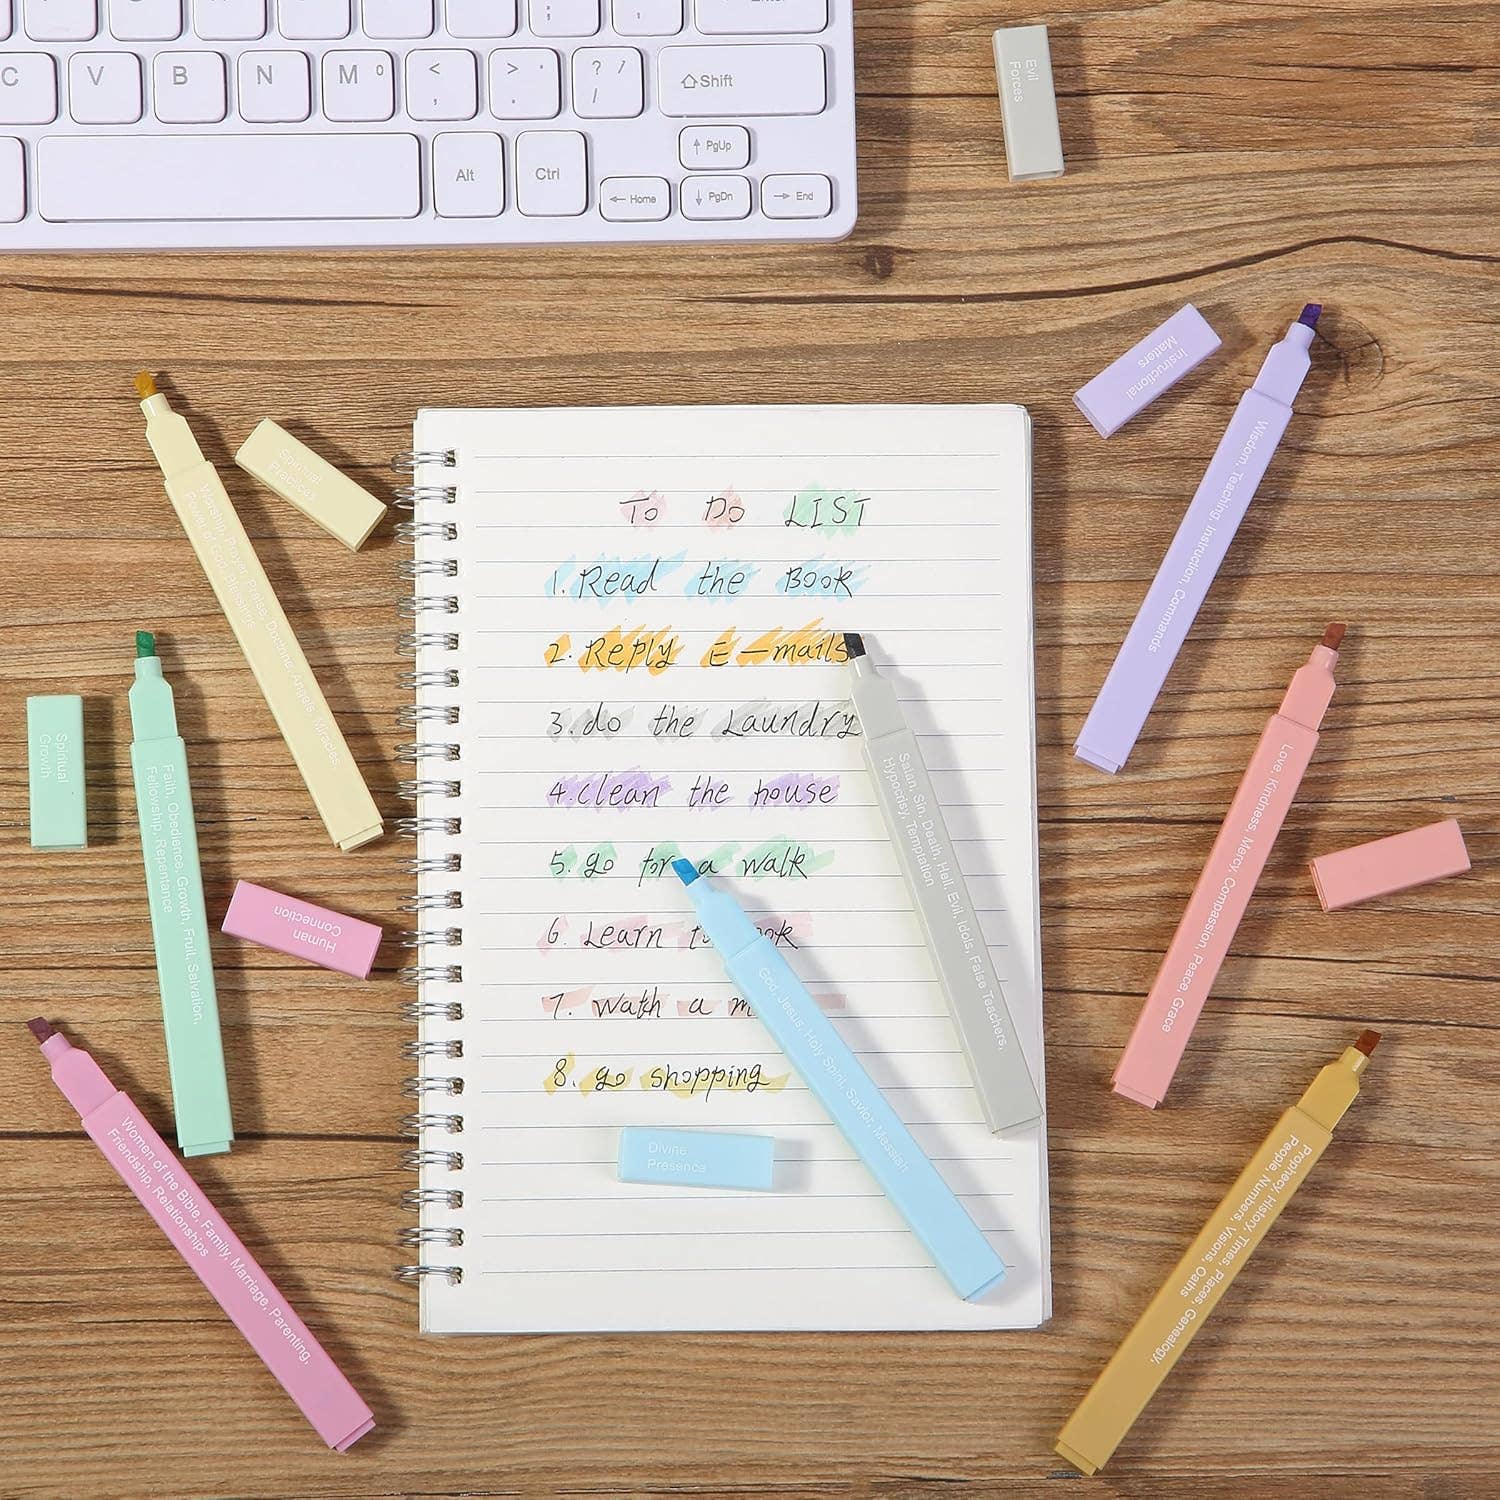 Enter
; :
C V B N M 0 < , > . ? / /
Shift
PgUp
Alt Ctrl
Home PgDn End
Evil
Forces
Instructional
Matters
Wisdom, Teaching, Instruction, Commands
Spiritual
Practices
Worship, Prayer, Praise, Doctrine, Angels, Miracles,
Power of God, Blessings
TO DO LIST
1. Read the Book
2. Reply E-mails
3. do the Laundry
4. clean the house
5. go for a walk
6. Learn
7. Watch a m
8. go shopping
Satan, Sin, Death, Hell, Evil, Idols, False Teachers,
Hypocrisy, Temptation
Spiritual
Growth
Faith, Obedience, Growth, Fruit, Salvation,
Fellowship, Repentance
Love, Kindness, Mercy, Compassion, Peace, Grace
Human
Connection
God, Jesus, Holy Spirit, Savior, Messiah
Divine
Presence
Women of the Bible, Family, Marriage, Parenting,
Friendship, Relationships
Prophecy, History, Times, Places, Genealogy,
People, Numbers, Visions, Oaths